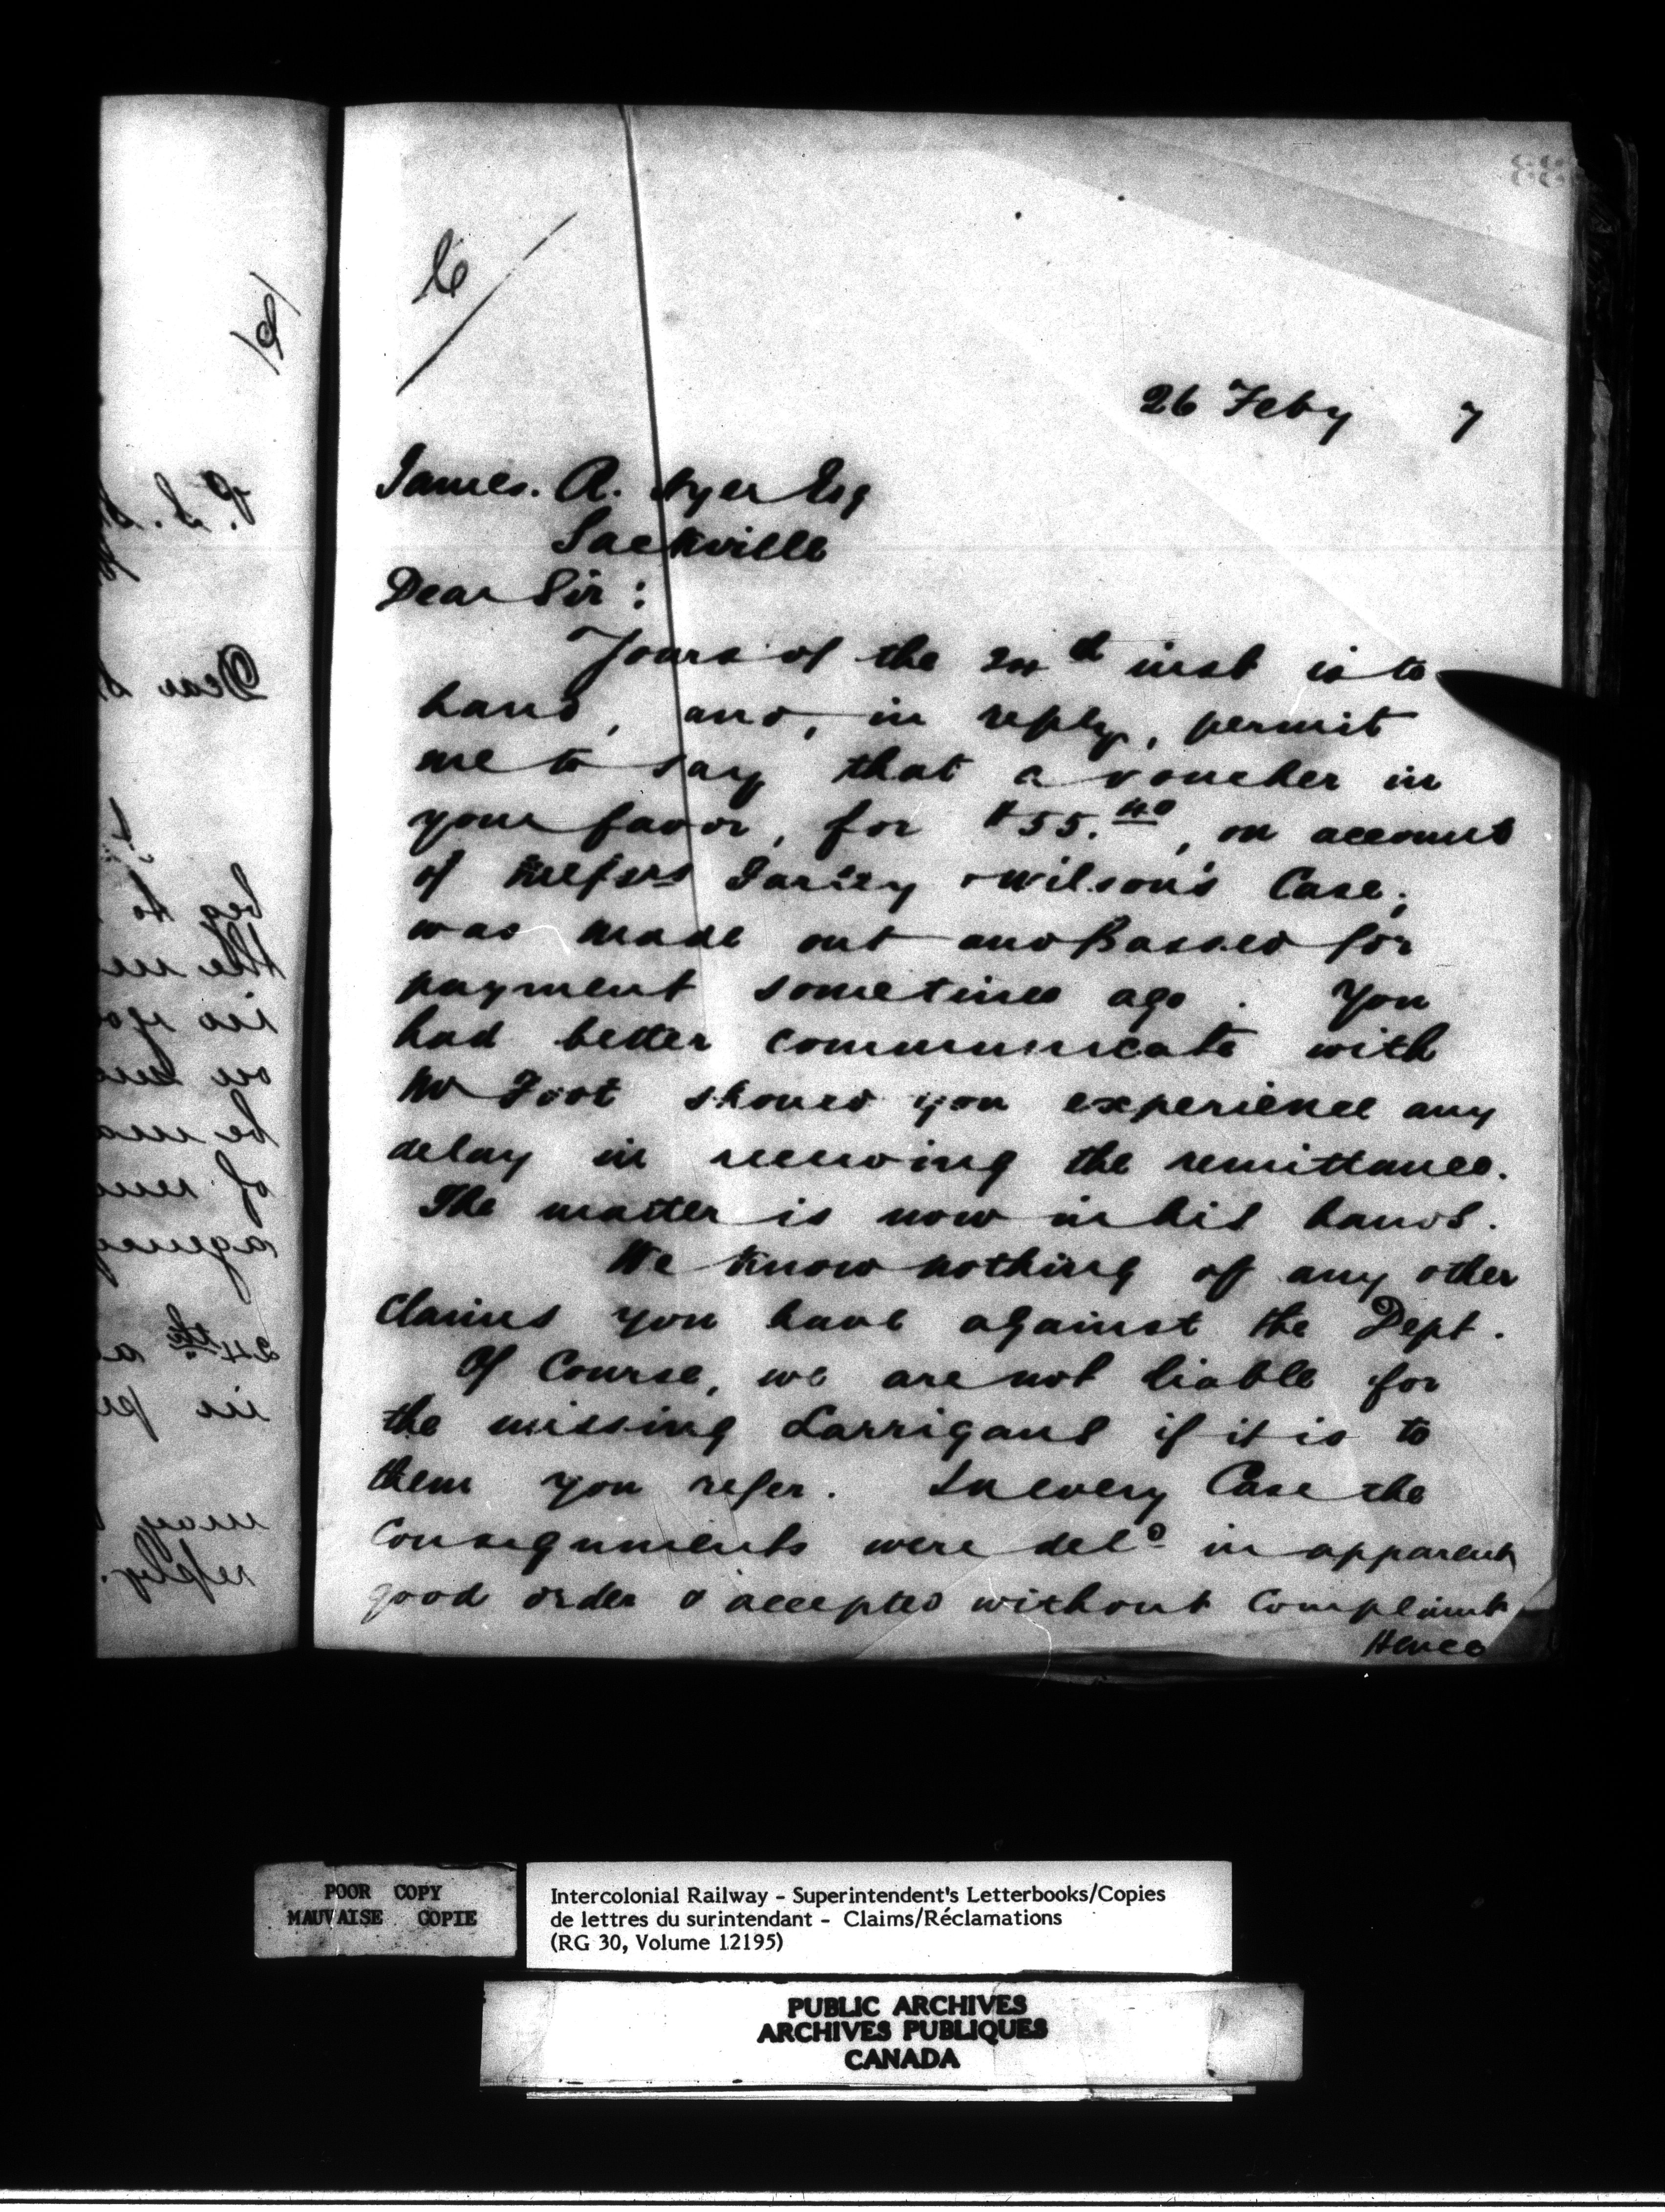 26 Feby 7
James. A. Ayer Esq
Sackville
Dear Sir:
Yours of the 24th inst is to
hand, and, in reply, permit
me to say that a voucher in
your favor, for $55.40, on account
of Messrs & Wilson's Case,
was made out and Passed for
payment sometime ago. You
had better communicate with
Mr Foot should you experience any
delay in receiving the remittance.
The matter is now in his hands.
We know nothing of any other
claims you have against the Dept.
Of Course, we are not liable for
the missing Larrigans if it is to
them you refer. In every Case the
Consignments were deld in apparent
good order & accepted without Complaint
Hence
Dear
beg to
the
in
on
be
of
24th
in
may
reply.
POOR COPY
MAUVAISE COPIE
Intercolonial Railway - Superintendent's Letterbooks/Copies
de lettres du surintendant - Claims/Réclamations
(RG 30, Volume 12195)
PUBLIC ARCHIVES
ARCHIVES PUBLIQUES
CANADA